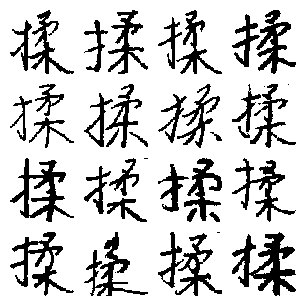 揉揉揉揉
揉揉揉揉
揉揉揉揉
揉揉揉揉